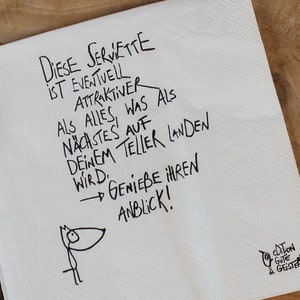 DIESE SERVIETTE
IST EVENTUELL
ATTRAKTIVER
ALS ALLES, WAS ALS
NÄCHSTES AUF
DEINEM TELLER LANDEN
WIRD.
→ GENIEßE IHREN
ANBLICK!
EDITION
GUTE
GEISTER